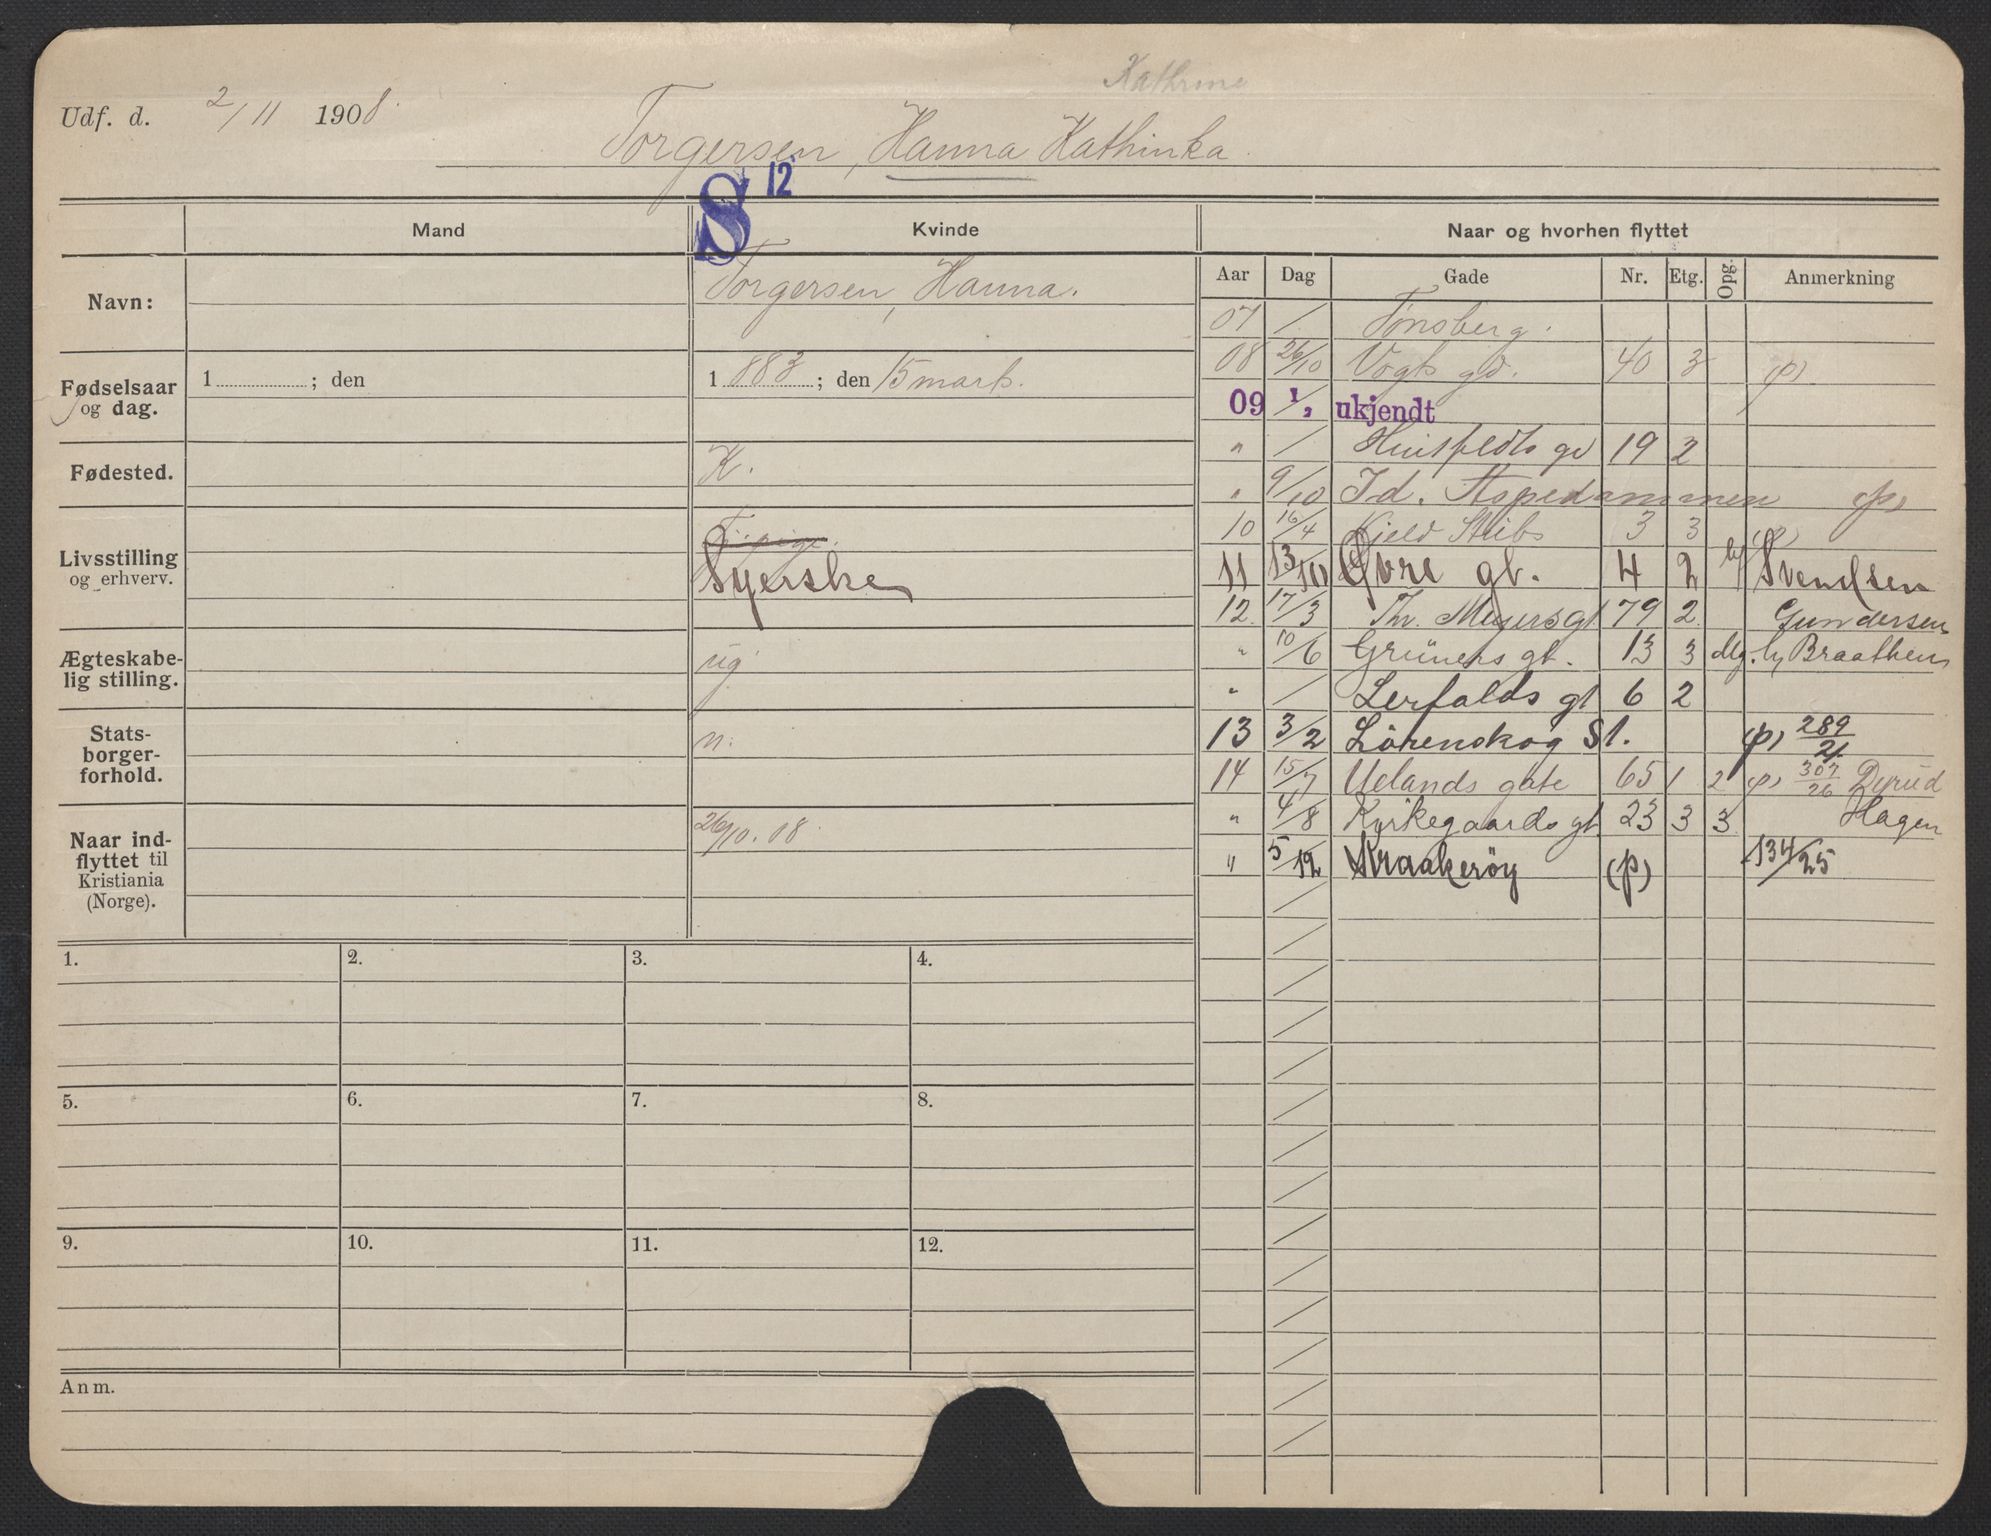 Kathrine
Udf. d. 2/11 1908.
Torgersen, Hanna Kathinka.
S 12
Mand Kvinde Naar og hvorhen flyttet
Aar Dag Gade Nr. Etg. Opg. Anmerkning
Navn: Torgersen, Hanna.
Fødselsaar og dag. 1 ; den 1 883 ; den 15 marts.
Fødested. K.
Livsstilling og erhverv. T. pige.
Syerske
Ægteskabelig stilling. ug
Statsborgerforhold. n.
Naar indflyttet til Kristiania (Norge). 26/10. 08
07 / Tønsberg.
08 26/10 Vogts gd. 40 3 (p)
09 1/2 ukjendt
" / Huitfeldts gd 19 2
" 9/10 Id. Aspedammen (p)
10 16/4 Kjeld Stubs 3 3 (p)
11 13/10 Øvre gt. 4 2 h/ Svendsen
12 17/3 Th. Meyers gt 79 2 Gundersen
" 10/6 Grüners gt. 13 3 dlg. h/ Braathen
" / Lerfalds gt 6 2
13 3/2 Lörenskog St. (p) 289/21
14 15/7 Uelands gate 65 1 2 (p) 307/26 Dyrud
" 4/8 Kirkegaards gt. 23 3 3 Hagen
" 5/12 Kraakerøy (p) 134/25
1. 2. 3. 4.
5. 6. 7. 8.
9. 10. 11. 12.
Anm.